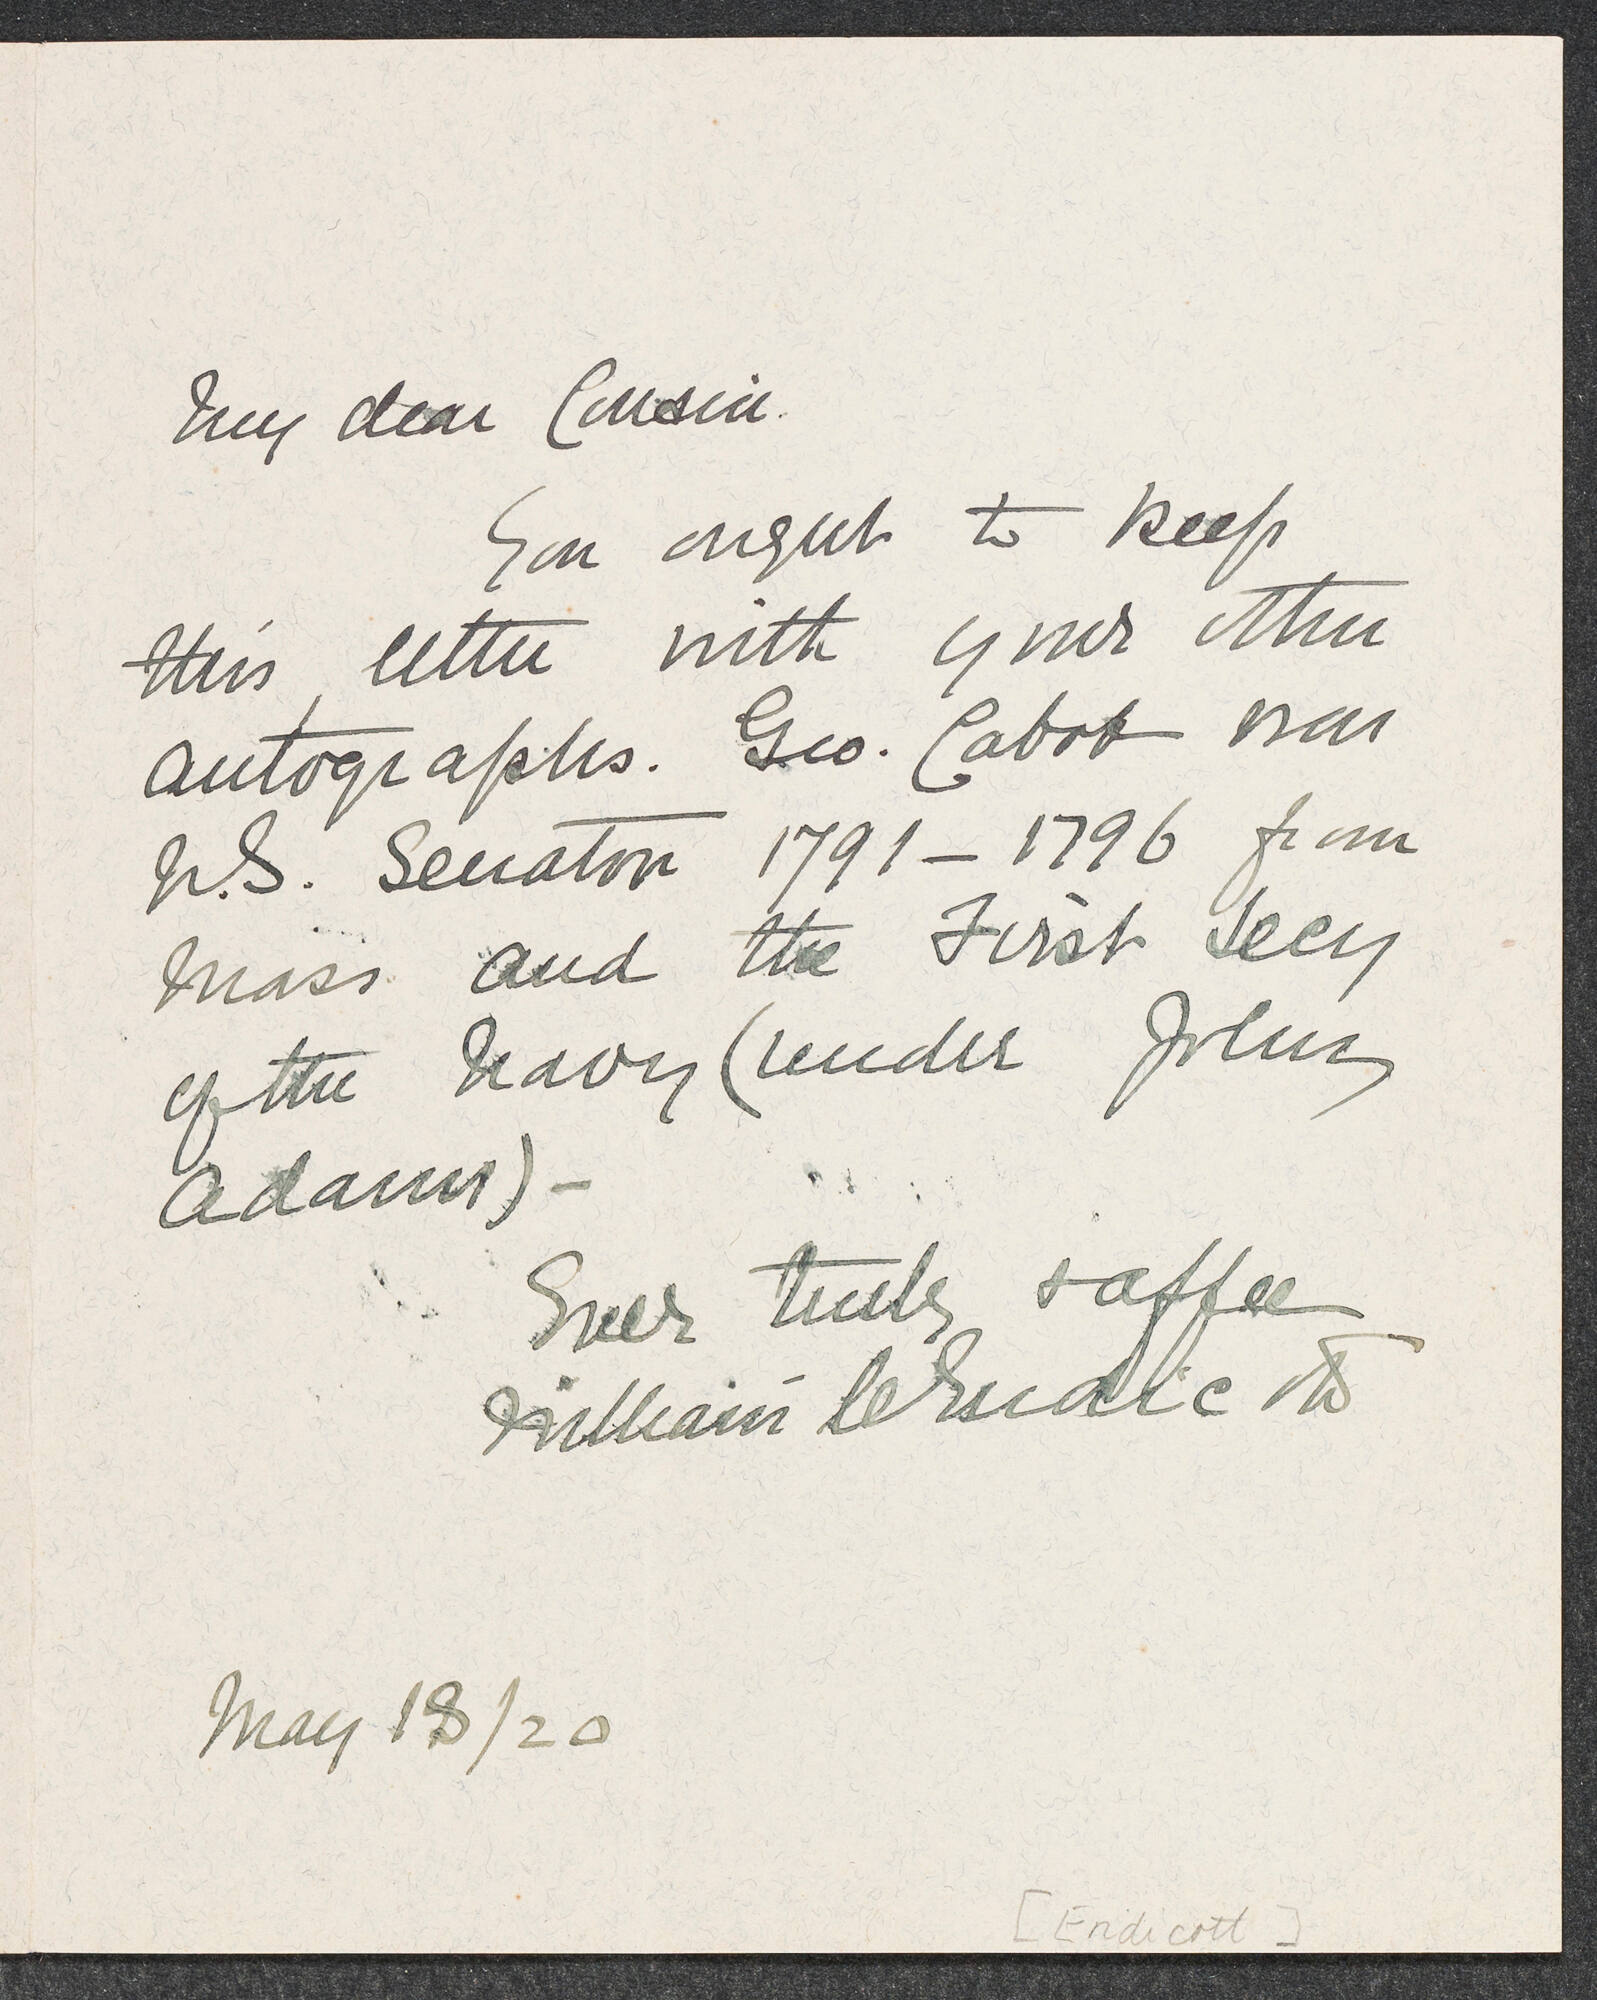 My dear Cousin.
You ought to keep
this letter with your other
autographs. Geo. Cabot was
U.S. Senator 1791-1796 from
Mass and the First Secy
of the Navy (under John
Adams) -
Ever truly & affec
William C Endicott
May 18/20
[Endicott]